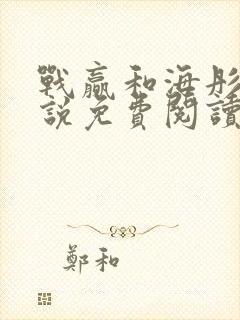 戰贏和海彤
說免費閱讀
鄭和